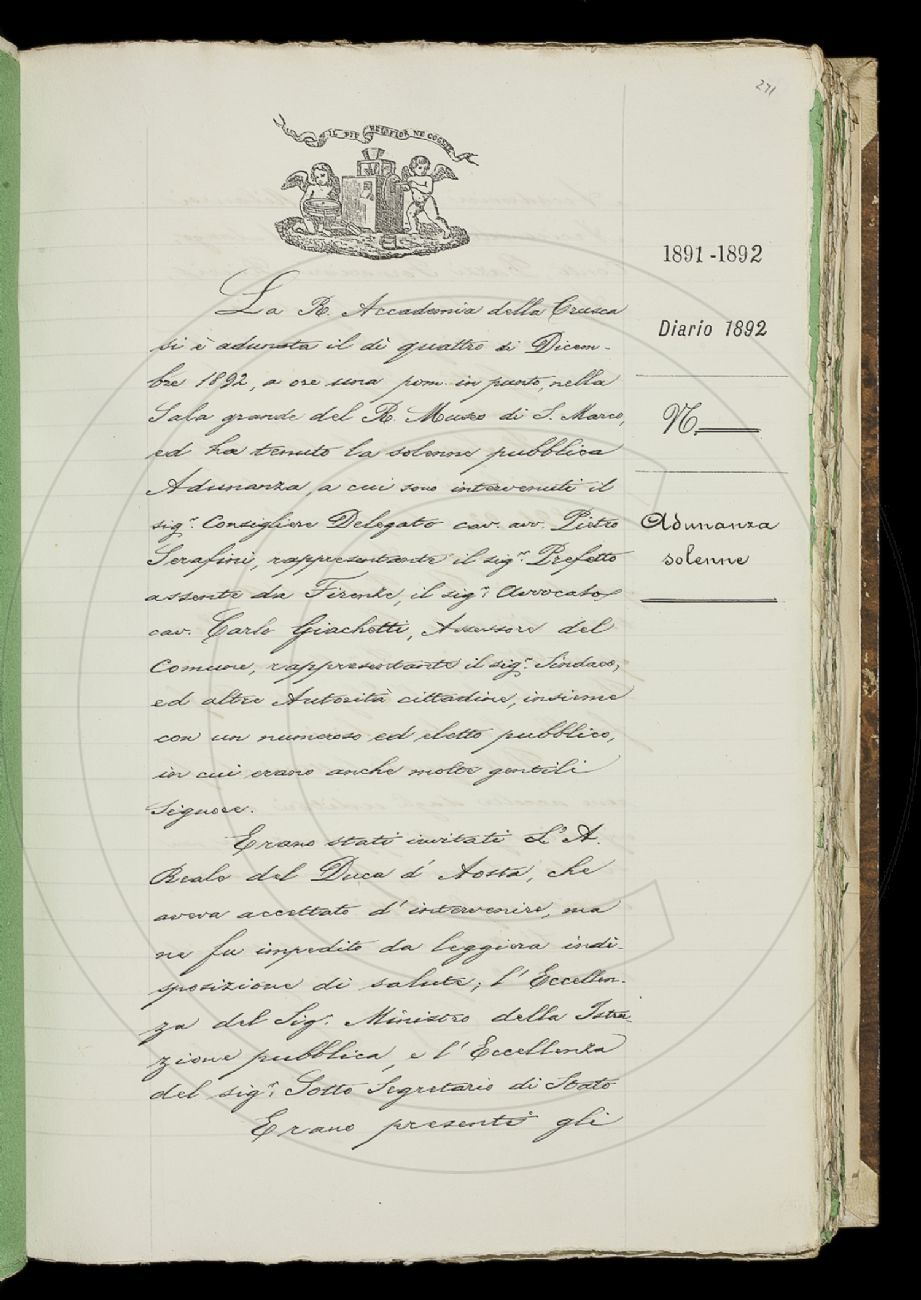 271
IL PIÙ BEL FIOR NE COGLIE
1891-1892
Diario 1892
N.
Adunanza
solenne
La R. Accademia della Crusca
si è adunata il dì quattro di Dicem-
bre 1892, a ore una pom. in punto, nella
Sala grande del R. Museo di S. Marco,
ed ha tenuto la solenne pubblica
Adunanza, a cui sono intervenuti il
sigr. Consigliere Delegato cav. avv. Pietro
Serafini, rappresentante il sigr. Prefetto
assente da Firenze, il sigr. Avvocato
cav. Carlo Giachetti, Assessore del
Comune, rappresentante il sigr. Sindaco,
ed altre Autorità cittadine, insieme
con un numeroso ed eletto pubblico,
in cui erano anche molte gentili
Signore.
Erano stati invitati S. A.
Reale del Duca d' Aosta, che
aveva accettato d' intervenire, ma
ne fu impedito da leggiera indi-
sposizione di salute; l' Eccellen-
za del Sigr. Ministro della Istru-
zione pubblica, e l' Eccellenza
del sigr. Sotto Segretario di Stato
Erano presenti gli